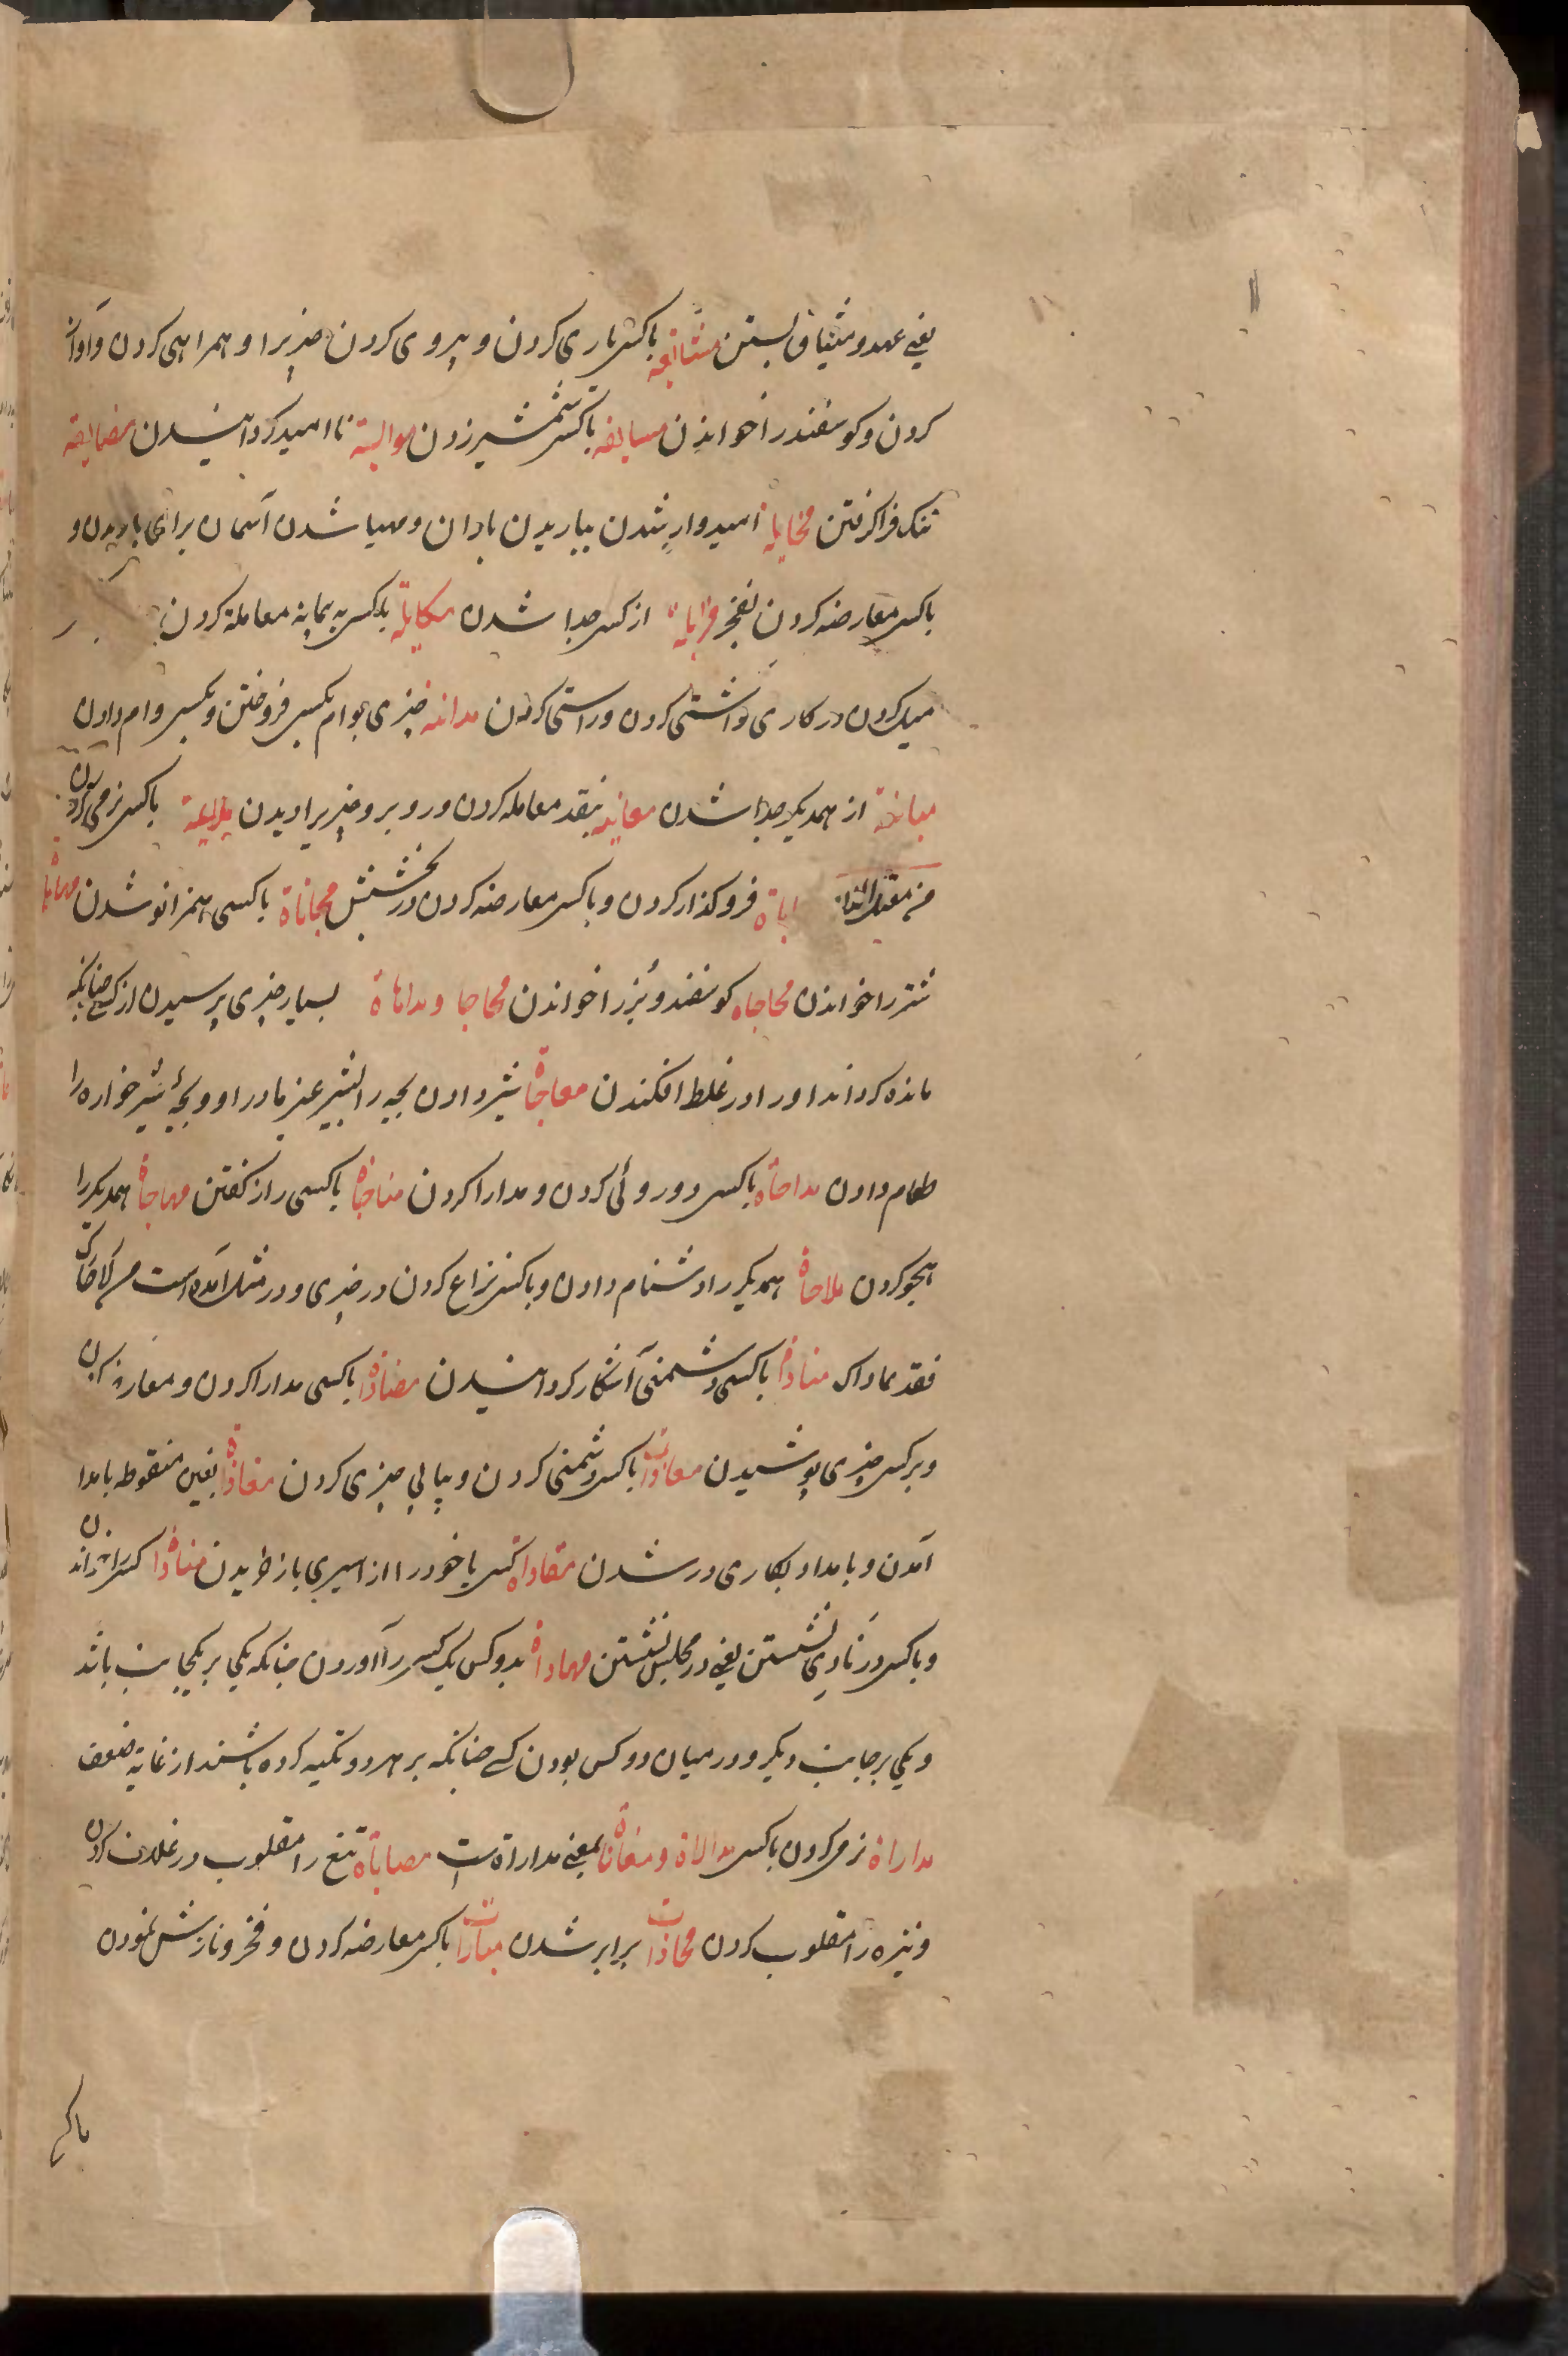 یعنی عهد و میثاق بستن مشایعه باکسی یاری کردن و پیروی کردن چیزیرا و همراهی کردن و آواز
کردن و کوسفند را خواندن مسایفه باکسی شمشیر زدن موایسة ناامید کردانیدن مضایقه
تنک فراکرفتن مخایله امیدوار شدن بباریدن باران و مهیا شدن آسمان برای باریدن و
باکسی معارضه کردن بفخر مزایله از کسی جدا شدن مکایلة باکسی به پیمانه معاملة کردن
میل کردن در کاری و آشتی کردن و راستی کردن مداینه چیزی بوام بکسی فروختن و بکسی وام دادن
مباینة از همدیکر جدا شدن معاینه بنقد معامله کردن و روبرو چیزیرا دیدن ملاینة باکسی نرمی کردن
من معتل اللام اباة فروکذار کردن و باکسی معارضه کردن در بخشش مجاثاة باکسی همزانو شدن مهاباة
شتر را خواندن محاجاه کوسفند و بز را خواندن محاجا و مداهاة بسیار چیزی پرسیدن از کسی چنانکه
مانده کرداند او را و در غلط افکندن معاجاة شیر دادن بچه را بشیر غیر مادر او و بچهٔ شیر خواره را
طعام دادن مداجاة باکسی دوروئی کردن و مدارا کردن مناجاة باکسی راز کفتن مهاجاة همدیکر را
هجو کردن ملاحاة همدیکر را دشنام دادن و باکسی نزاع کردن در چیزی و در مثل آمده است من لاحاک
فقد عاداک مناداة باکسی دشمنی آشکار کردانیدن مضاداة باکسی مدارا کردن و معارضه کردن
و برکسی چیزی پوشیدن معادات باکسی دشمنی کردن و پیاپی چیزی کردن مغاداة بغین منقوطه بامداد
آمدن و بامداد بکاری در شدن مفاداة کسی یا خود را از اسیری باز خریدن مناداة کسی را خواندن
و باکسی در نادی نشستن یعنی در مجلس نشستن مهاداة بدو کس یک کسی را آوردن چنانکه یکی بر یکجانب باشد
و یکی بر جانب دیکر و در میان دو کس بودن کسی چنانکه بر هر دو تکیه کرده باشند از غایة ضعف
مداراة نرمی کردن باکسی مدالاة و مغاناة بمعنی مداراة است مصاباة تیغ را مقلوب در غلاف کردن
و نیزه را مقلوب کردن محاذات برابر شدن مبارات باکسی معارضه کردن و فخر و نازش نمودن
باکسی